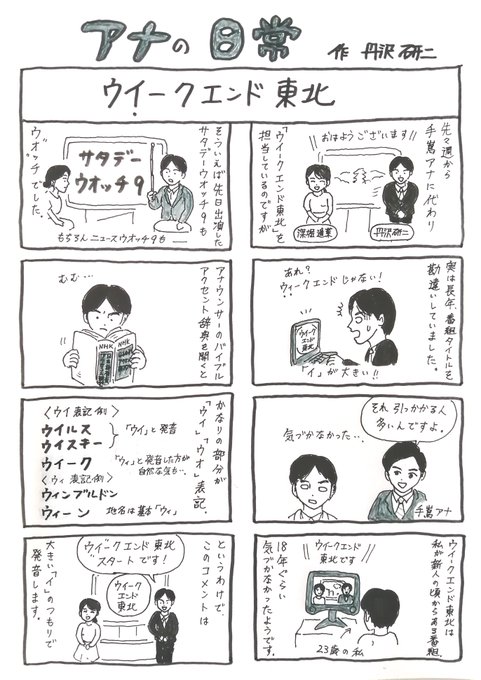 アナの日常
作 丹沢研二
ウイークエンド東北
先々週から
手嶌アナに代わり
「ウイークエンド東北」を
担当しているのですが
おはようございます!!
丹沢研二
実は長年、番組タイトルを
勘違いしていました。
あれ?
ウィークエンドじゃない!
ウイーク
エンド
東北
「イ」が大きい!!
それ引っかかる人
多いんですよ。
気づかなかった…
手嶌アナ
ウイークエンド東北は
私が新人の頃からある番組。
18年ぐらい
気づかなかったようです。
ウイークエンド
東北です
23歳の私
そういえば先日出演した
サタデーウオッチ9も
サタデー
ウオッチ9
"ウオ"ッチでした。
もちろんニュースウオッチ9も
アナウンサーのバイブル
アクセント辞典を開くと
むむ…
NHK
NHK
かなりの部分が
「ウイ」「ウオ」表記。
〈ウイ表記例〉
ウイルス
ウイスキー
「ウイ」と発音
ウイーク
「ウィ」と発音した方が
自然な気も…
〈ウィ表記例〉
ウィンブルドン
ウィーン
地名は基本「ウィ」
というわけで、
このコメントは
"ウイ"ークエンド東北
スタートです!
ウイーク
エンド
東北
大きい「イ」のつもりで
発音します。